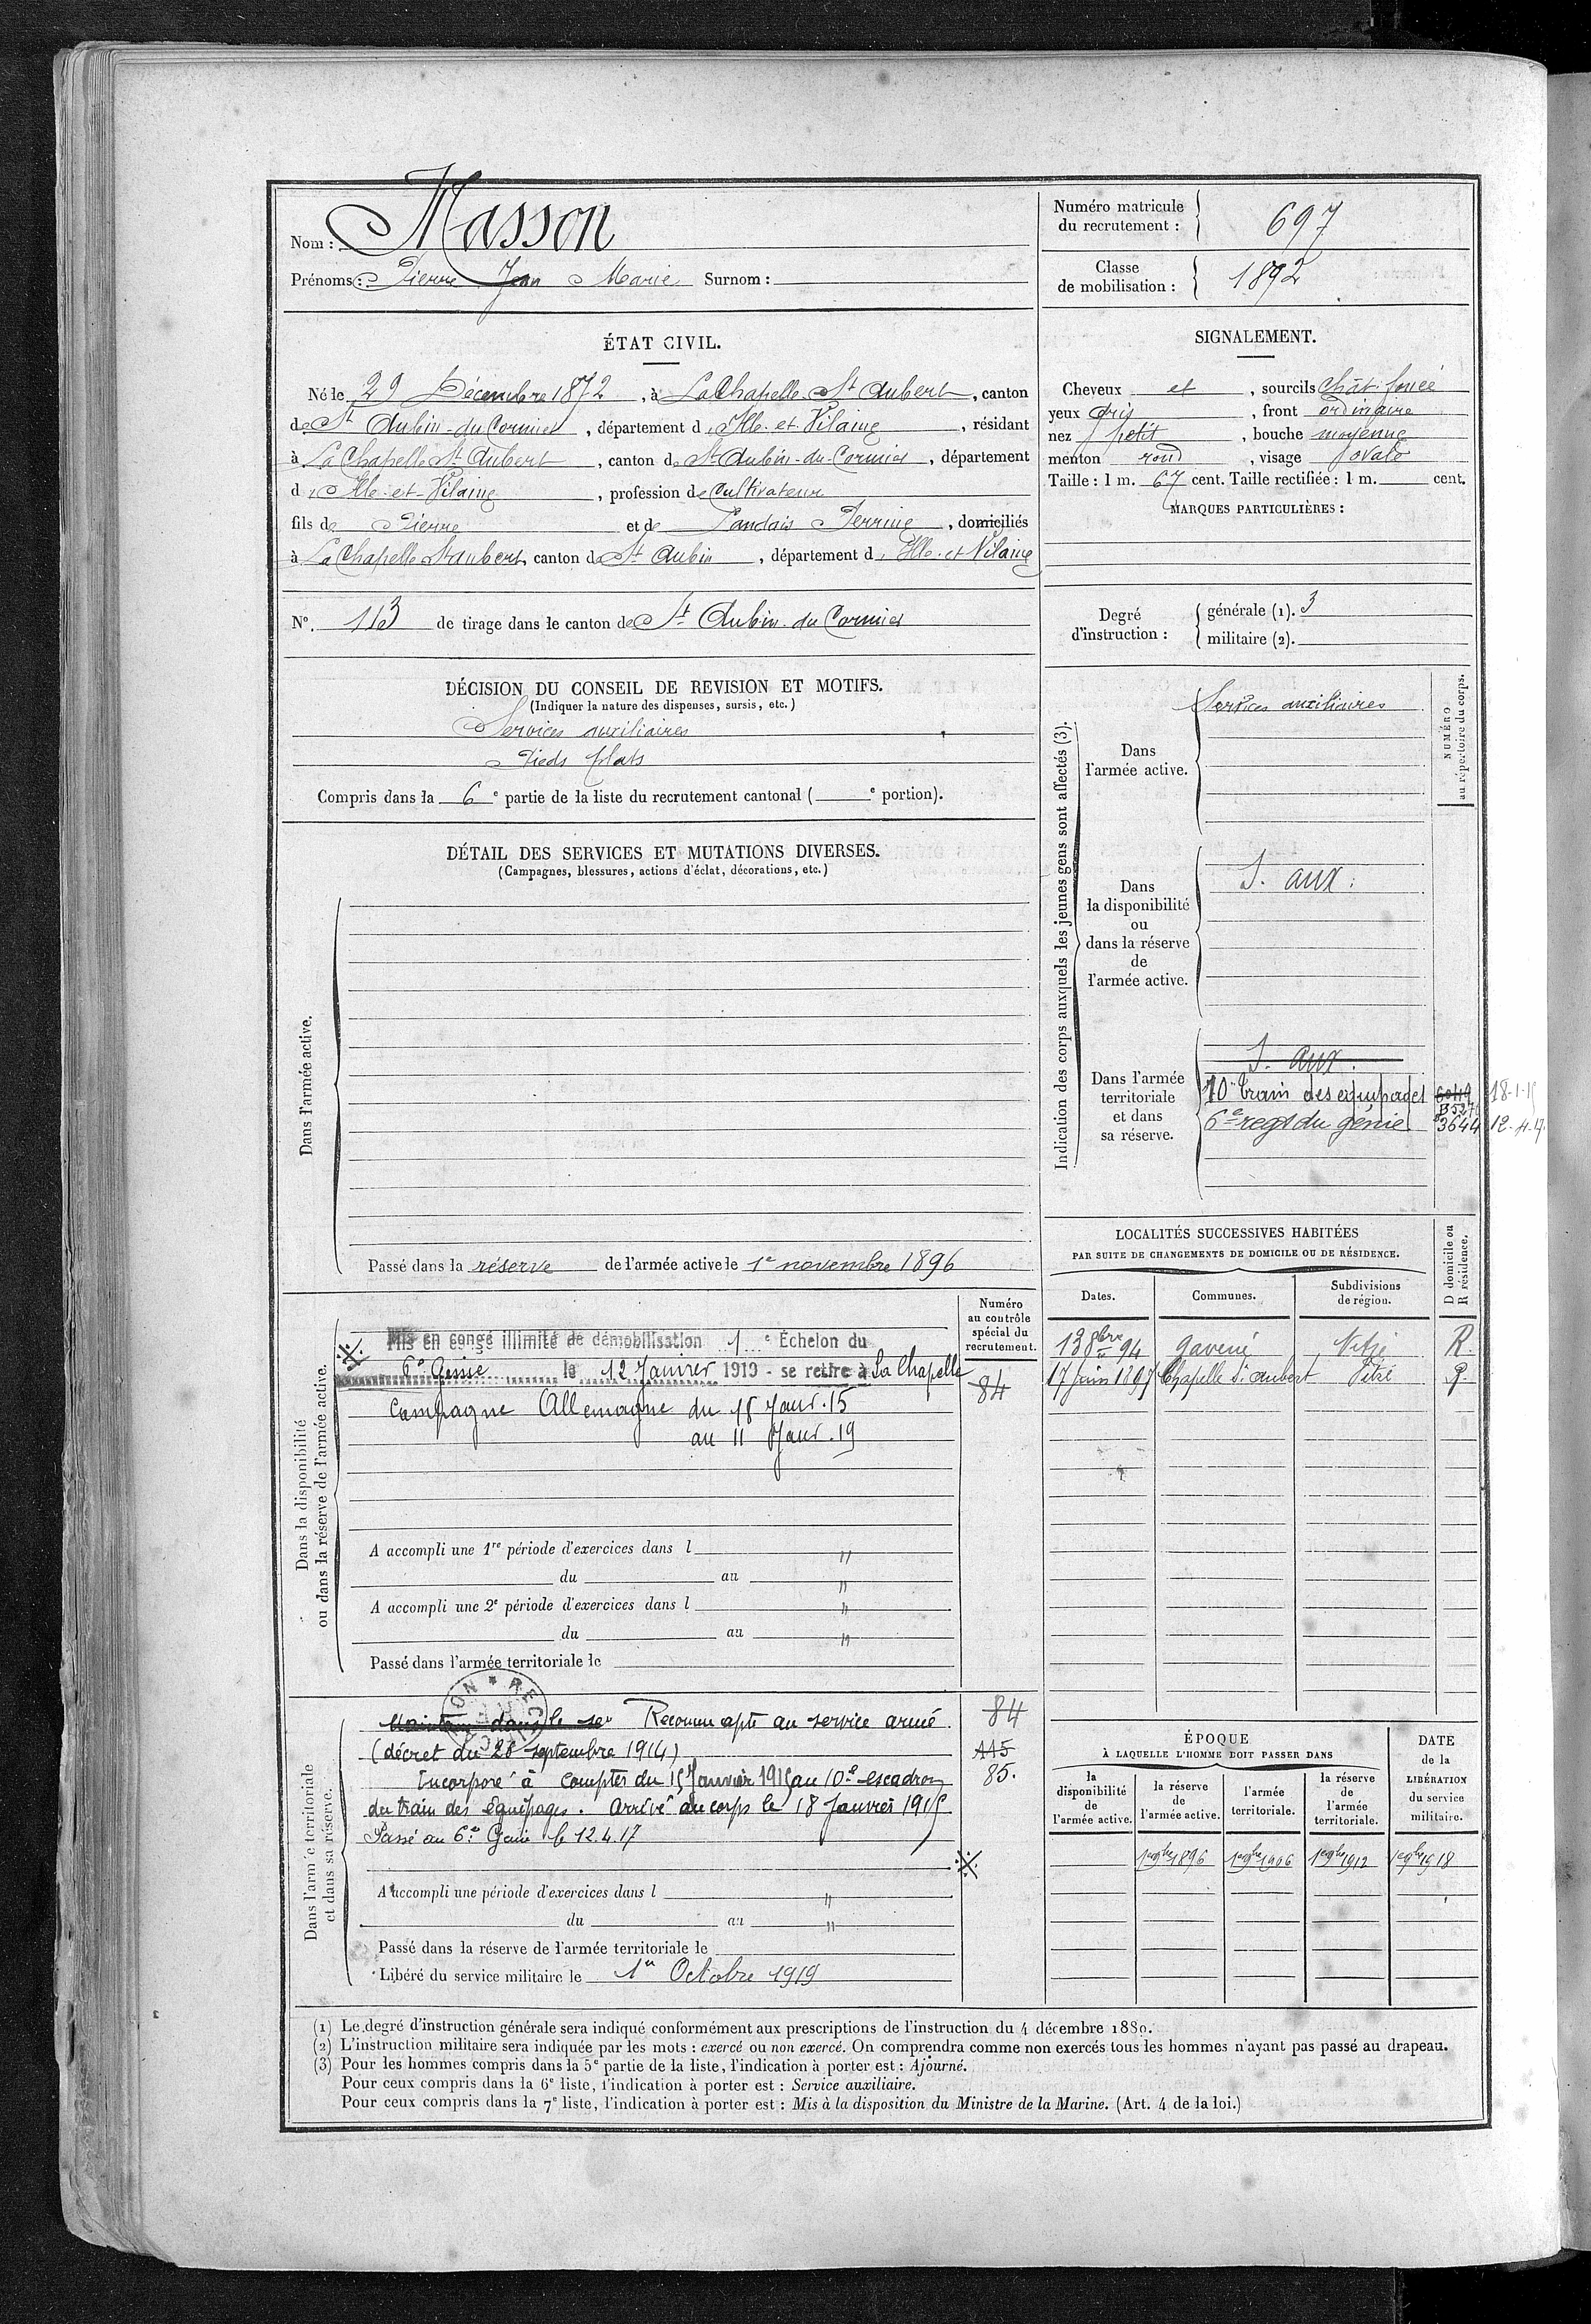 Nom : Masson
Prénoms : Pierre Jean Marie Surnom :
Numéro matricule du recrutement : 697
Classe de mobilisation : 1892
ÉTAT CIVIL.
Né le 29 Décembre 1872, à La Chapelle St Aubert, canton
de St Aubin-du-Cormier, département d'Ille-et-Vilaine, résidant
à La Chapelle St Aubert, canton de St Aubin-du-Cormier, département
d'Ille-et-Vilaine, profession de Cultivateur
fils de Pierre et de Landais Perrine, domiciliés
à La Chapelle St aubert, canton de St Aubin, département d'Ille-et-Vilaine
N° 113 de tirage dans le canton de St Aubin-du-Cormier
SIGNALEMENT.
Cheveux et, sourcils chât. foncé
yeux gris, front ordinaire
nez petit, bouche moyenne
menton rond, visage ovale
Taille : 1 m. 67 cent. Taille rectifiée : 1 m. cent.
MARQUES PARTICULIÈRES :
Degré d'instruction : générale (1). 3
militaire (2).
DÉCISION DU CONSEIL DE REVISION ET MOTIFS.
(Indiquer la nature des dispenses, sursis, etc.)
Services auxiliaires
Pieds plats
Compris dans la 6e partie de la liste du recrutement cantonal ( e portion).
DÉTAIL DES SERVICES ET MUTATIONS DIVERSES.
(Campagnes, blessures, actions d'éclat, décorations, etc.)
Dans l'armée active.
Passé dans la réserve de l'armée active le 1e novembre 1896
Indication des corps auxquels les jeunes gens sont affectés (3).
NUMÉRO au répertoire du corps.
Dans l'armée active.
Services auxiliaires
Dans la disponibilité ou dans la réserve de l'armée active.
S. aux.
Dans l'armée territoriale et dans sa réserve.
S. aux.
10e train des équipages 18-1-15
6e regt du génie 3644 12-4-17
Dans la disponibilité ou dans la réserve de l'armée active.
Numéro au contrôle spécial du recrutement.
Mis en congé illimité de démobilisation 1 e Échelon du
6e Génie le 12 Janvier 1919 - se retire à La Chapelle
84
Campagne Allemagne du 15 Janv. 15
au 11 Janv. 19
A accompli une 1re période d'exercices dans l "
du au "
A accompli une 2e période d'exercices dans l "
du au "
Passé dans l'armée territoriale le
LOCALITÉS SUCCESSIVES HABITÉES
PAR SUITE DE CHANGEMENTS DE DOMICILE OU DE RÉSIDENCE.
Dates. Communes. Subdivisions de région. D domicile ou R résidence.
13 8bre 94 Vitré R.
17 juin 1897 Chapelle St aubert Vitré R.
Dans l'armée territoriale et dans sa réserve.
Reconnu apte au service armé 84
(décret du 26 septembre 1914) 115
Incorporé à compter du 15 Janvier 1915 au 10e escadron 85.
du train des équipages. Arrivé au corps le 18 Janvier 1915
Passé au 6e Génie le 12.4.17
A accompli une période d'exercices dans l "
du au "
Passé dans la réserve de l'armée territoriale le
Libéré du service militaire le 1er Octobre 1919
ÉPOQUE
À LAQUELLE L'HOMME DOIT PASSER DANS
la disponibilité de l'armée active. la réserve de l'armée active. l'armée territoriale. la réserve de l'armée territoriale.
DATE de la LIBÉRATION du service militaire.
1er 9bre 1896 1er 9bre 1906 1er 9bre 1912 1er 9bre 1918
(1) Le degré d'instruction générale sera indiqué conformément aux prescriptions de l'instruction du 4 décembre 1889.
(2) L'instruction militaire sera indiquée par les mots : exercé ou non exercé. On comprendra comme non exercés tous les hommes n'ayant pas passé au drapeau.
(3) Pour les hommes compris dans la 5e partie de la liste, l'indication à porter est : Ajourné.
Pour ceux compris dans la 6e liste, l'indication à porter est : Service auxiliaire.
Pour ceux compris dans la 7e liste, l'indication à porter est : Mis à la disposition du Ministre de la Marine. (Art. 4 de la loi.)